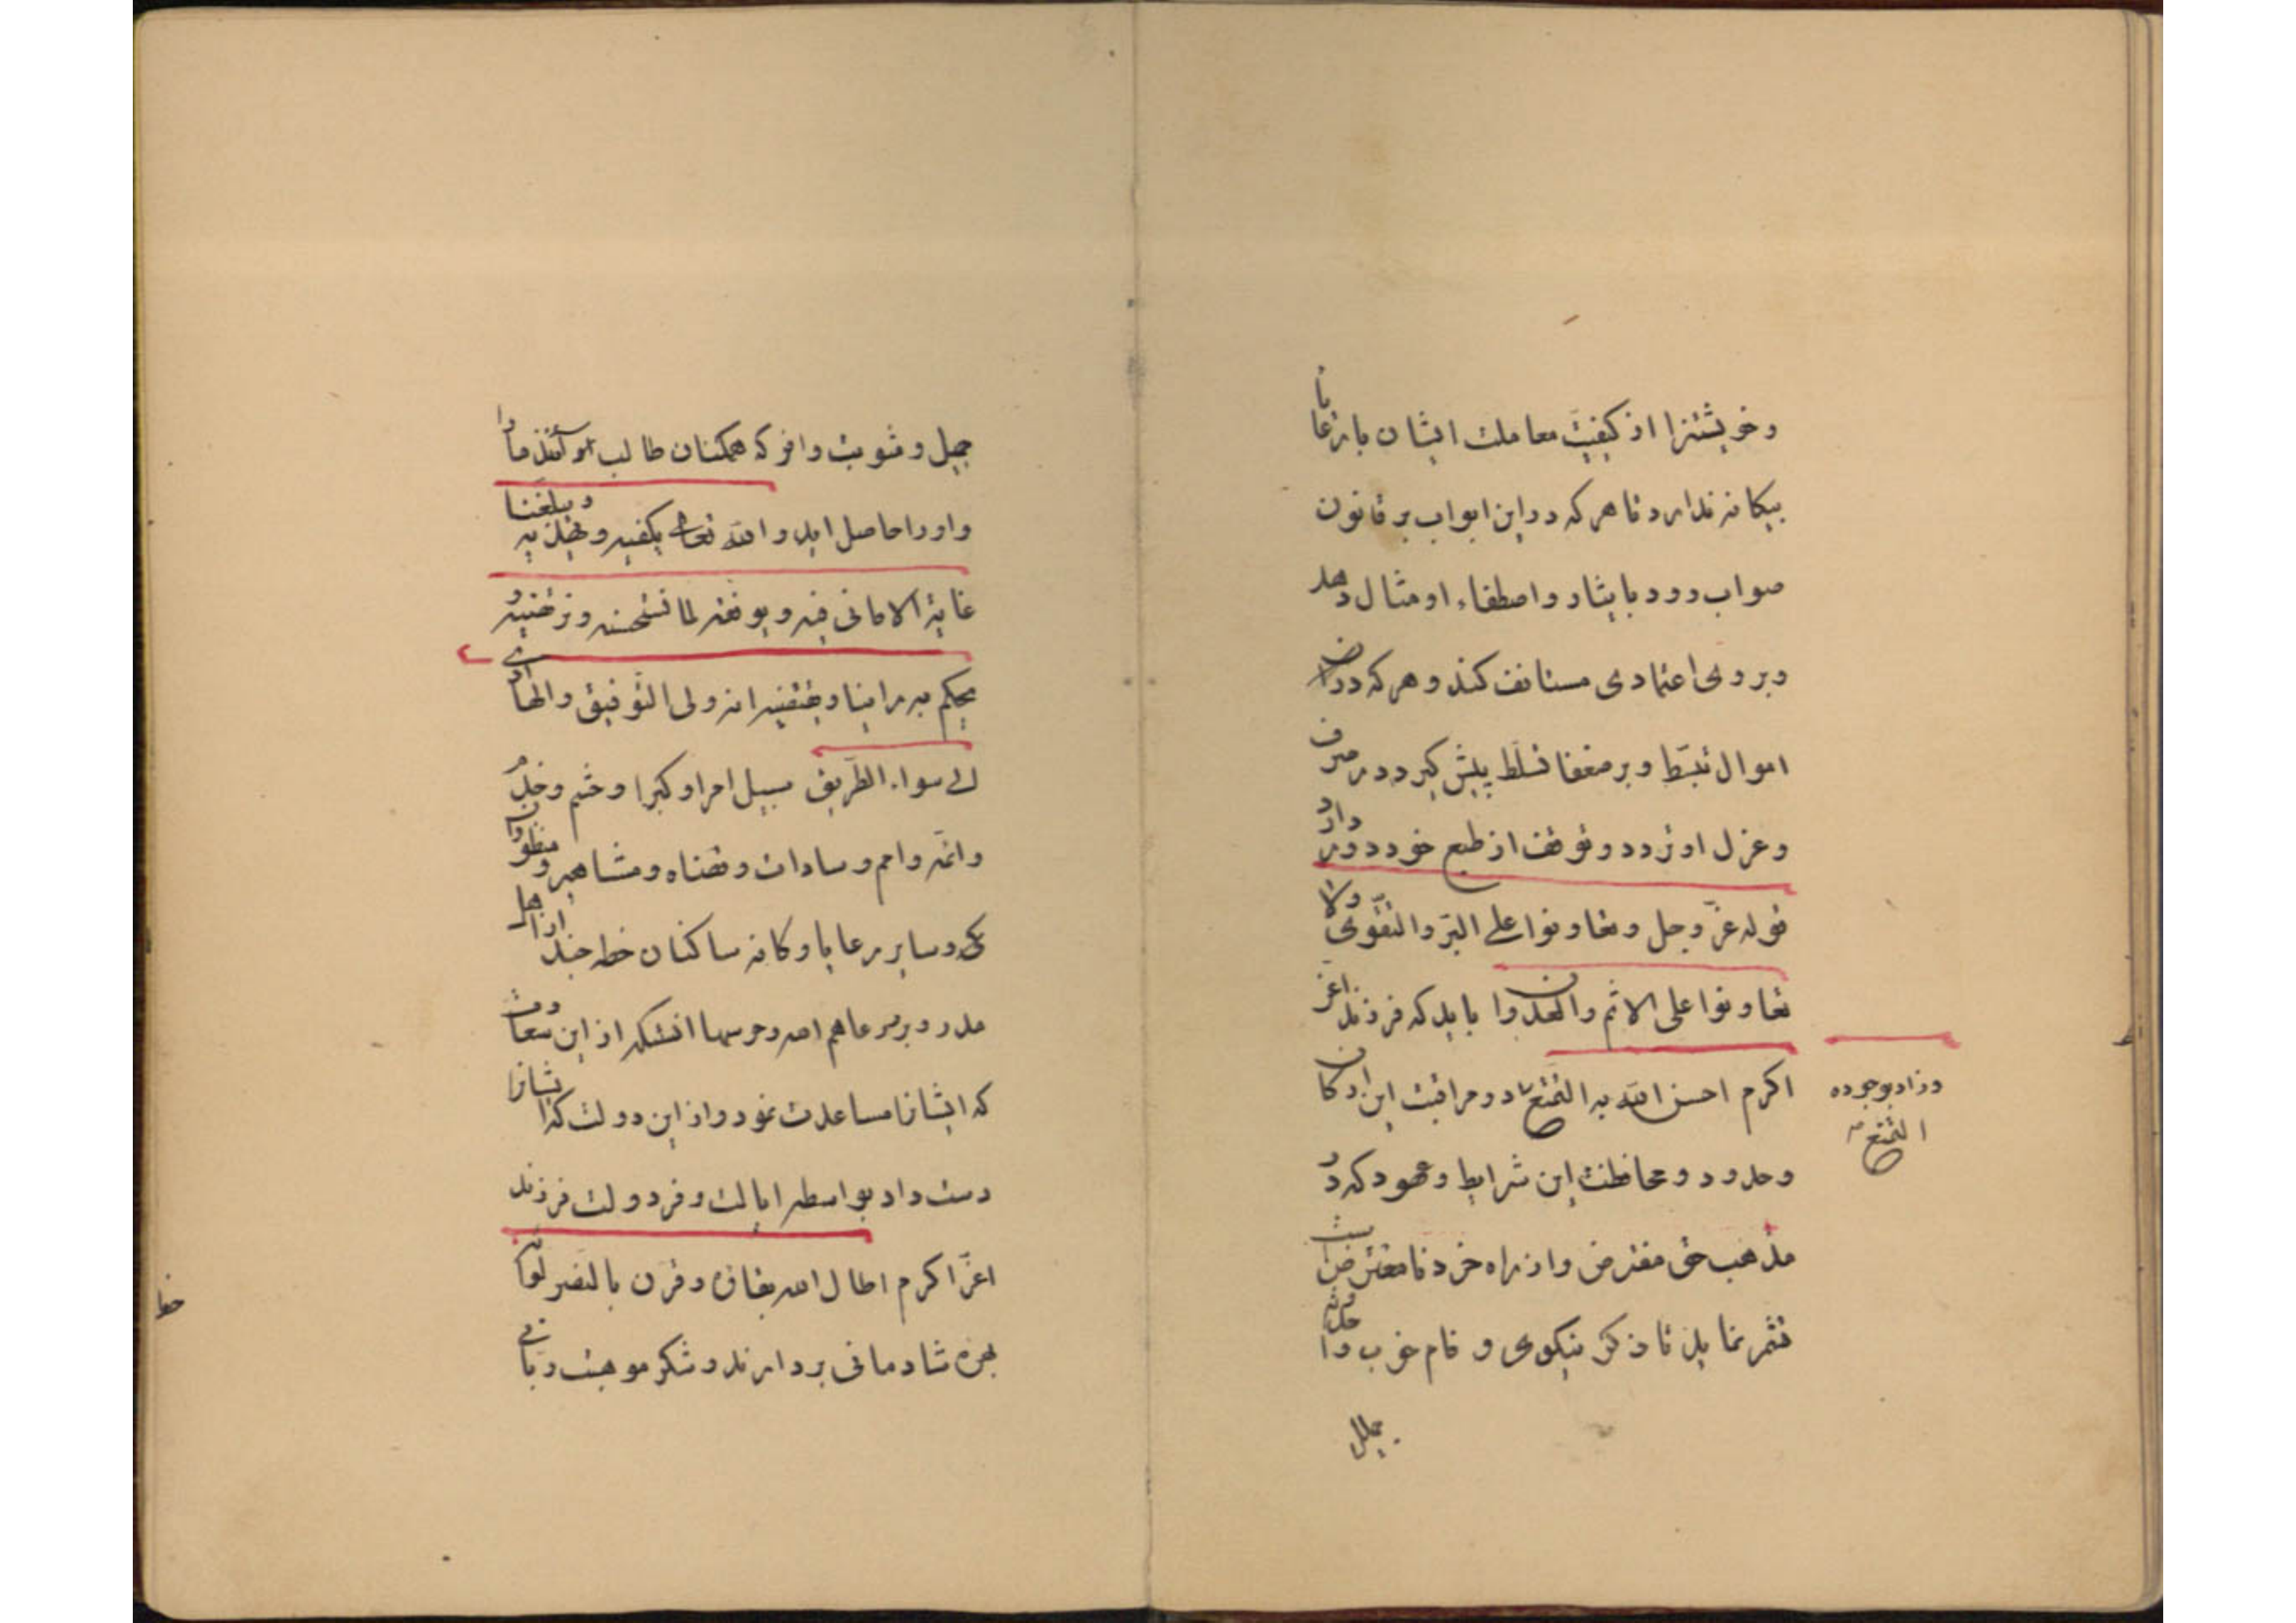 و خویشتنرا از کیفیت معاملت ایشان با رعایا
بیکانه ندارد تا هر که در این ابواب بر قانون
صواب رود بایثار و اصطفاء او مثال دهد
و بر وی اعتمادی مستانف کند و هر که در
اموال تبسّط و بر ضعفا تسلّط پیش کیرد در صرف
و عزل او تردد و توقف از طبع خود دور دارد
قوله عزّ و جل و تعاونوا علی البرّ والتقوی ولا
تعاونوا علی الاثم والعدوان باید که فرزند اعز
اکرم احسن الله به التمتع در مراقبت این ارکان
و حدود و محافظت این شرایط و عهود که در
مذهب حق مفترض و از راه خرد نامعترض است
تشمر نماید تا ذکر نیکوی و نام خوب
وزاد بوجوده
التمتع
جمیل و مثوبت وافر که همکنان طالب آنند ما را
و او را حاصل اید و الله تعالی یکفیه و یبلغنا
غایة الامانی فیه و یوفقه لما نستحسنه و نرتضیه
بحکم به راینا و یقتفیه انه ولی التوفیق والهادی
الی سواء الطریق سبیل امرا و کبرا و حشم و خدم
و ائمه و امم و سادات و قضاه و مشاهیر و
و سایر رعایا و کافه ساکنان خطه جند
و هم الله و حرسها انستکه از این سعادت
که ایشانرا مساعدت نمود و از این دولت که ایشانرا
دست داد بواسطه ایالت و فر دولت فرزند
اعزّ اکرم اطال الله بقاه و قرن بالنصر لواه
بهره شادمانی بردارند و شکر موهبت ربانی